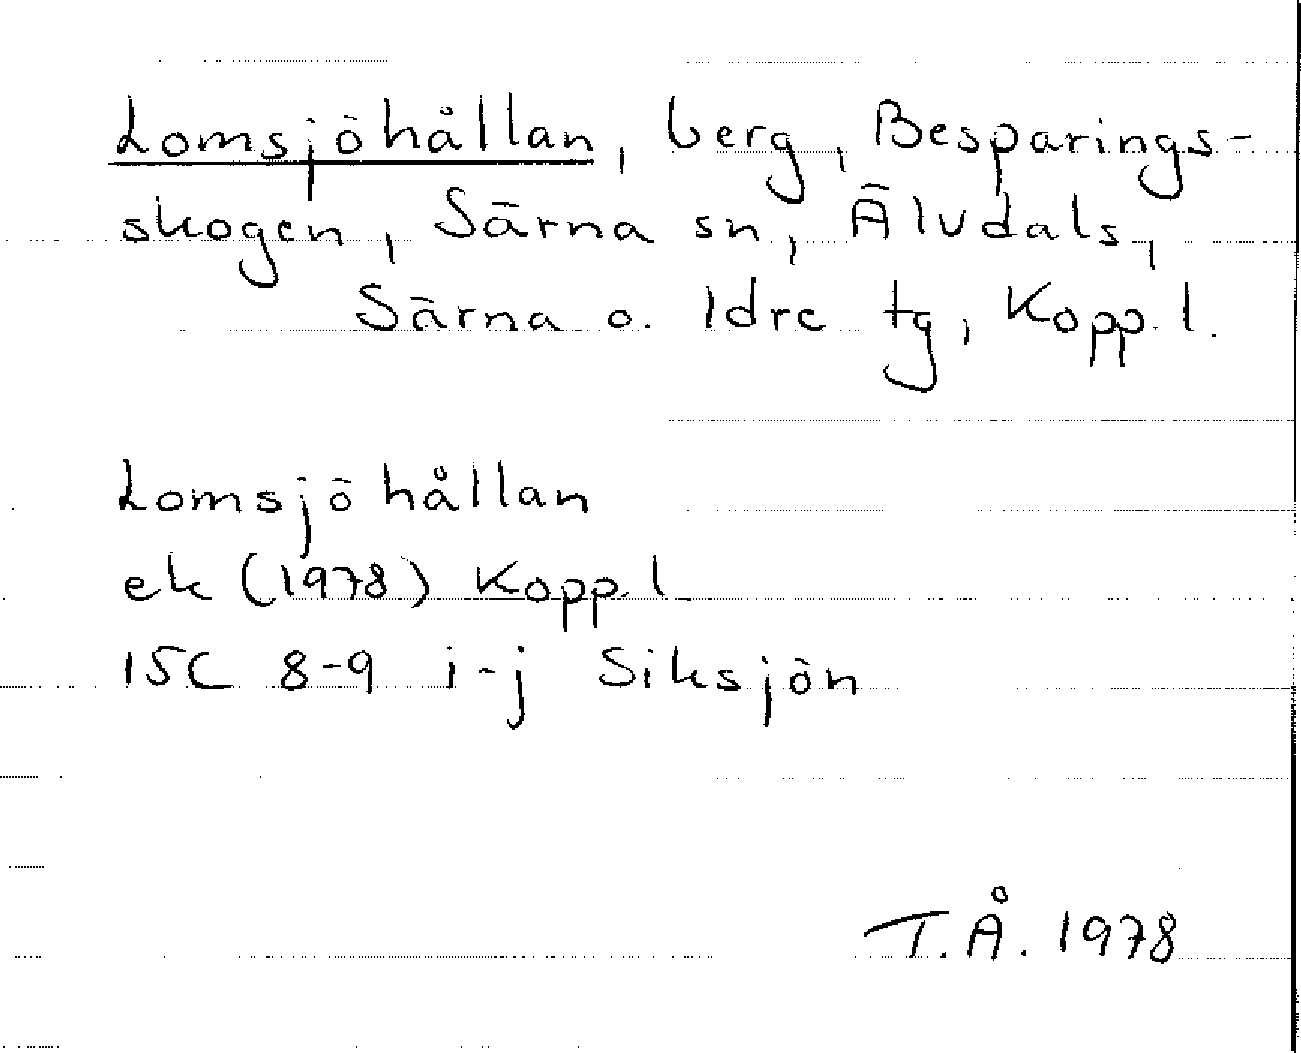 Lomsjöhållan, berg, Besparings-
skogen, Särna sn, Älvdals,
Särna o. Idre tg, Kopp. l.
Lomsjöhållan
ek (1978) Kopp. l
15C 8-9 i-j Siksjön
T.Å. 1978